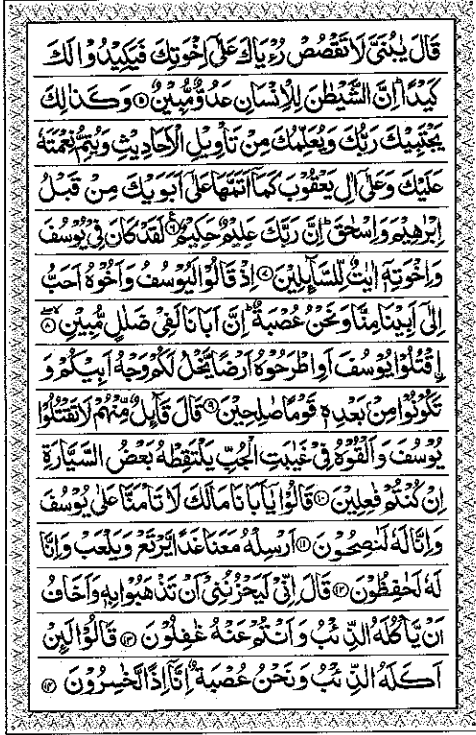 قَالَ يٰبُنَيَّ لَا تَقْصُصْ رُءْيَاكَ عَلٰٓى اِخْوَتِكَ فَيَكِيْدُوْا لَكَ
كَيْدًا ؕ اِنَّ الشَّيْطٰنَ لِلْاِنْسَانِ عَدُوٌّ مُّبِيْنٌ ۝۵ وَكَذٰلِكَ
يَجْتَبِيْكَ رَبُّكَ وَيُعَلِّمُكَ مِنْ تَاْوِيْلِ الْاَحَادِيْثِ وَيُتِمُّ نِعْمَتَهٗ
عَلَيْكَ وَعَلٰٓى اٰلِ يَعْقُوْبَ كَمَاۤ اَتَمَّهَا عَلٰٓى اَبَوَيْكَ مِنْ قَبْلُ
اِبْرٰهِيْمَ وَاِسْحٰقَ ؕ اِنَّ رَبَّكَ عَلِيْمٌ حَكِيْمٌ ۝۶ لَقَدْ كَانَ فِيْ يُوْسُفَ
وَاِخْوَتِهٖۤ اٰيٰتٌ لِّلسَّآئِلِيْنَ ۝۷ اِذْ قَالُوْا لَيُوْسُفُ وَاَخُوْهُ اَحَبُّ
اِلٰٓى اَبِيْنَا مِنَّا وَنَحْنُ عُصْبَةٌ ؕ اِنَّ اَبَانَا لَفِيْ ضَلٰلٍ مُّبِيْنِ ۝۸
اۨقْتُلُوْا يُوْسُفَ اَوِاطْرَحُوْهُ اَرْضًا يَّخْلُ لَكُمْ وَجْهُ اَبِيْكُمْ وَ
تَكُوْنُوْا مِنْۢ بَعْدِهٖ قَوْمًا صٰلِحِيْنَ ۝۹ قَالَ قَآئِلٌ مِّنْهُمْ لَا تَقْتُلُوْا
يُوْسُفَ وَاَلْقُوْهُ فِيْ غَيٰبَتِ الْجُبِّ يَلْتَقِطْهُ بَعْضُ السَّيَّارَةِ
اِنْ كُنْتُمْ فٰعِلِيْنَ ۝۱۰ قَالُوْا يٰۤاَبَانَا مَالَكَ لَا تَاْمَنَّا عَلٰى يُوْسُفَ
وَاِنَّا لَهٗ لَنٰصِحُوْنَ ۝۱۱ اَرْسِلْهُ مَعَنَا غَدًا يَّرْتَعْ وَيَلْعَبْ وَاِنَّا
لَهٗ لَحٰفِظُوْنَ ۝۱۲ قَالَ اِنِّيْ لَيَحْزُنُنِيْۤ اَنْ تَذْهَبُوْا بِهٖ وَاَخَافُ
اَنْ يَّاْكُلَهُ الذِّئْبُ وَاَنْتُمْ عَنْهُ غٰفِلُوْنَ ۝۱۳ قَالُوْا لَئِنْ
اَكَلَهُ الذِّئْبُ وَنَحْنُ عُصْبَةٌ اِنَّاۤ اِذًا لَّخٰسِرُوْنَ ۝۱۴